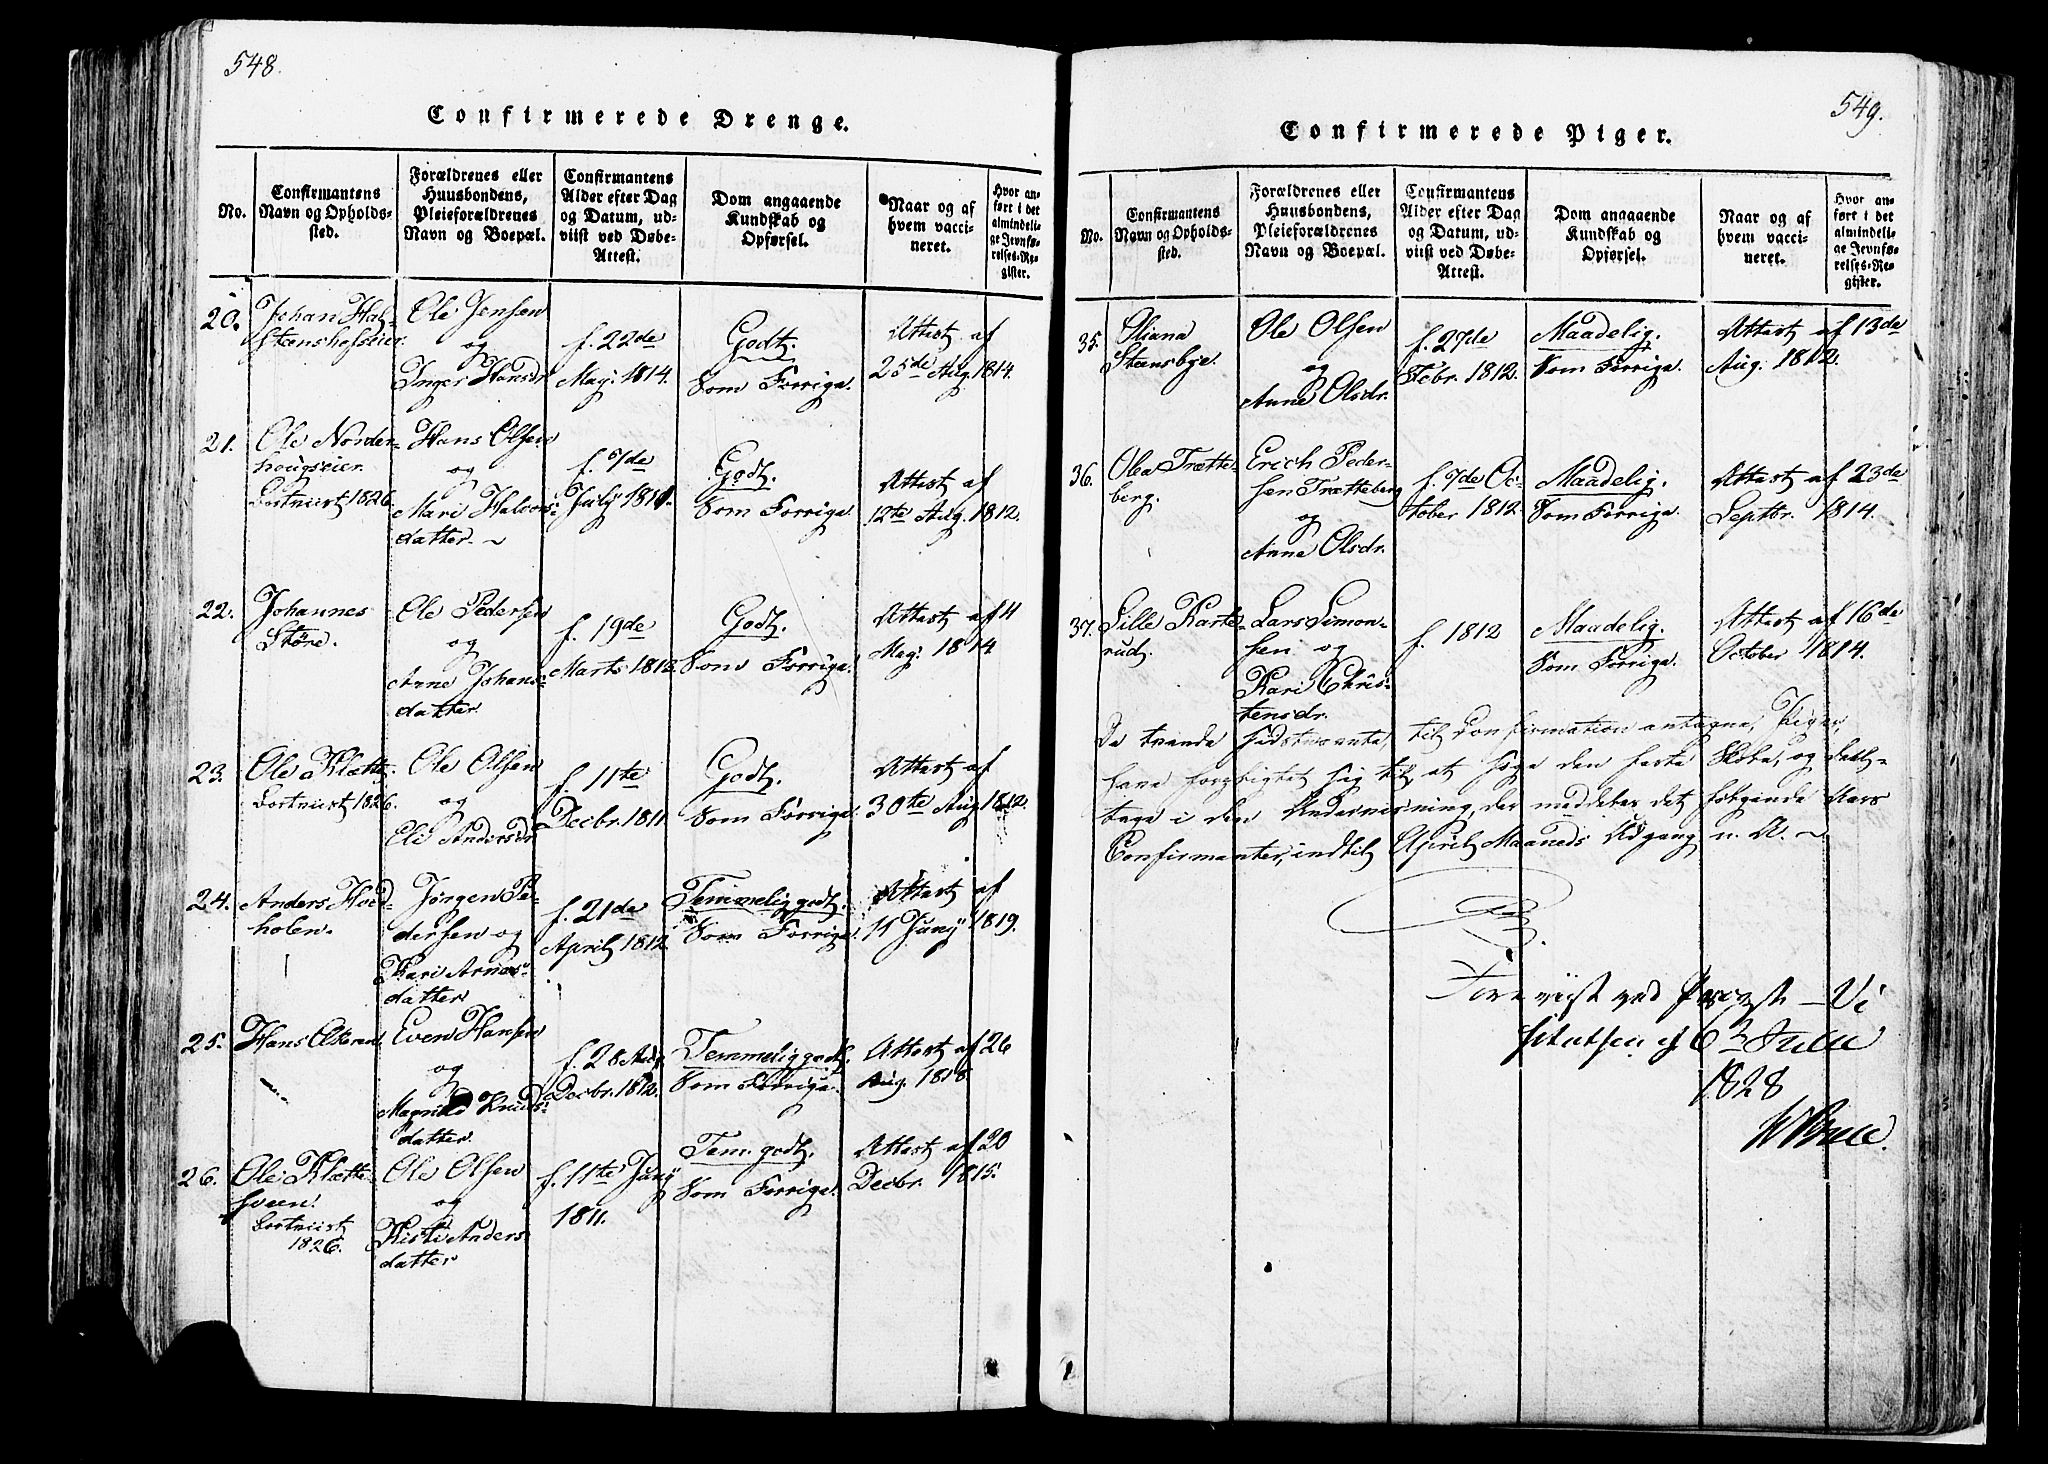 548.
Confirmerede Drenge.
No.
Confirmantens
Navn og Opholds-
sted.
Forældrenes eller
Huusbondens,
Pleieforældrenes
Navn og Boepæl.
Confirmantens
Alder efter Dag
og Datum, ud-
viist ved Døbe-
Attest.
Dom angaaende
Kundskab og
Opførsel.
Naar og af
hvem vacci-
neret.
Hvor an-
ført i det
almindeli-
ge Jevnfø-
relses-Re-
gister.
20.
Johan Hal-
steenshofseier.
Ole Jensen
og
Inger Hansdr.
f. 22de
May. 1814.
Godt.
Som Forrige.
Attest af
25de Aug. 1814.
21.
Ole Norder-
hougseier.
Bortviist 1826.
Hans Olsen
og
Mari Halvors-
datter. ~
f. 7de
July 1811.
Godt.
Som Forrige.
Attest af
12te Aug. 1812.
22.
Johannes
Støre.
Ole Pedersen
og
Anne Johans-
datter.
f. 19de
Marts 1812.
Godt.
Som Forrige.
Attest af 4
May. 1814.
23.
Ole Klætte.
Bortviist 1826.
Ole Olsen
og
Eli Andersdr.
f. 11te
Decbr. 1811.
Godt.
Som Forrige.
Attest af
30te Aug. 1812.
24.
Anders Hved-
holen.
Jørgen Pe-
dersen og
Kari Arnes-
datter
f. 21de
April 1812.
Temmelig godt.
Som Forrige.
Attest af
11 Juny 1819.
25.
Hans
Even Hansen
og
Knuds-
datter.
f. 28
Decbr. 1812.
Temmelig godt.
Som Forrige.
Attest af 26
Aug. 1818.
26.
Ole Klætte-
sveen.
Bortviist
1826.
Ole Olsen
og
Kisti Anders
datter
f. 11te Juny
1811.
Tem. godt.
Som Forrige.
Attest af 20
Decbr. 1815.
549.
Confirmerede Piger.
No.
Confirmantens
Navn og Opholds-
sted.
Forældrenes eller
Huusbondens,
Pleieforældrenes
Navn og Boepæl.
Confirmantens
Alder efter Dag
og Datum, ud-
viist ved Døbe-
Attest.
Dom angaaende
Kundskab og
Opførsel.
Naar og af
hvem vacci-
neret.
Hvor an-
ført i det
almindeli-
ge Jevnfø-
relses-Re-
gister.
35.
Oliana
Steensbye.
Ole Olsen
og
Anne Olsdr.
f. 27de
Febr. 1812.
Maadelig.
Som Forrige.
Attest af 13de
Aug. 1812.
36.
Olea Trætte-
berg.
Erich Peder-
sen Trætteberg
og
Anne Olsdr.
f. 7de Oc-
tober 1812.
Maadelig.
Som Forrige.
Attest af 23de
Septbr. 1814.
37.
Lille Karte-
rud.
Lars Simon-
sen og
Kari Chris-
tensdr.
f. 1812
Maadelig.
Som Forrige.
Attest af 16de
October 1814.
De trende sidstnævnte, til Confirmation antagne, Piger,
have forpligtet sig til at søge den faste Skole, og deel-
tage i den Underviisning, der meddeles det følgende Aars
Confirmanter, indtil April Maaneds Udgang n. A. ~
Foreviist ved Provste-Vi
sitatsen 6
1828